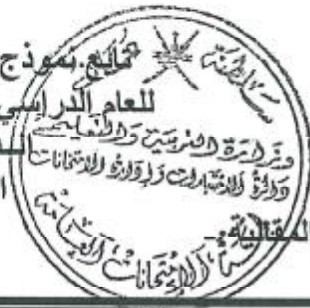 تابع نموذج
للعام الدراسي
سلطنة
وزارة التربية والتعليم
دائرة الاختبارات وإدارة الامتحانات
الامتحانات العامة
المقالية